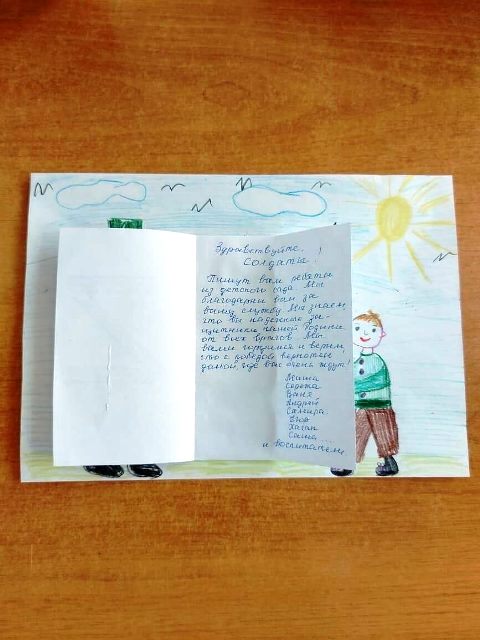 Здравствуйте,
Солдаты!
Пишут вам ребята
из детского сада. Мы
благодарим вам за
вашу службу. Мы знаем
что вы надежные за-
щитники нашей Родины
от всех врагов. Мы
вами гордимся и верим,
что с победой вернетесь
домой, где вас очень ждут!
Миша
Сережа
Ваня
Андрей
Самира
Егор
Саша
и воспитатели.